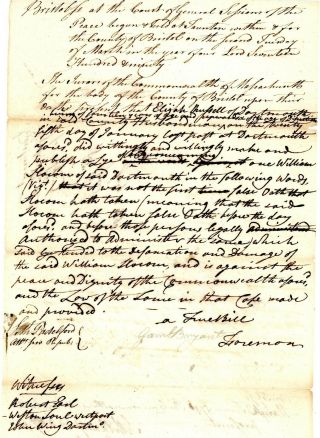 Bristol ss At the Court of General Sessions of the
Peace begun & held at Taunton within & for
the County of Bristol on the second Tuesday
of March in the year of our Lord Seventeen
Hundred and ninety
The Jurors of the Commonwealth of Massachusetts
for the body of the County of Bristol upon their
oath present that Elijah Russell of
fifth day of January last past at Dartmouth
afores'd, and wittingly and willingly make and
publish a Lye one William
Slocum of said Dartmouth in the following Words
(viz) that it was not the first time false Oath that
Slocum hath taken (meaning that the said
Slocum hath taken false Oath before the day
afores'd, and before those persons legally administered
Authorized to Administer the same) which
said Lye tended to the Defamation and Damage of
the said William Slocum, and is against the
peace and Dignity of the Commonwealth afores'd,
and the Law of the Same in that Case made
and provided. a True Bill
Foreman
Witnesses
Robert Earl
Weston Soul Westport
John Wing Dartm'o